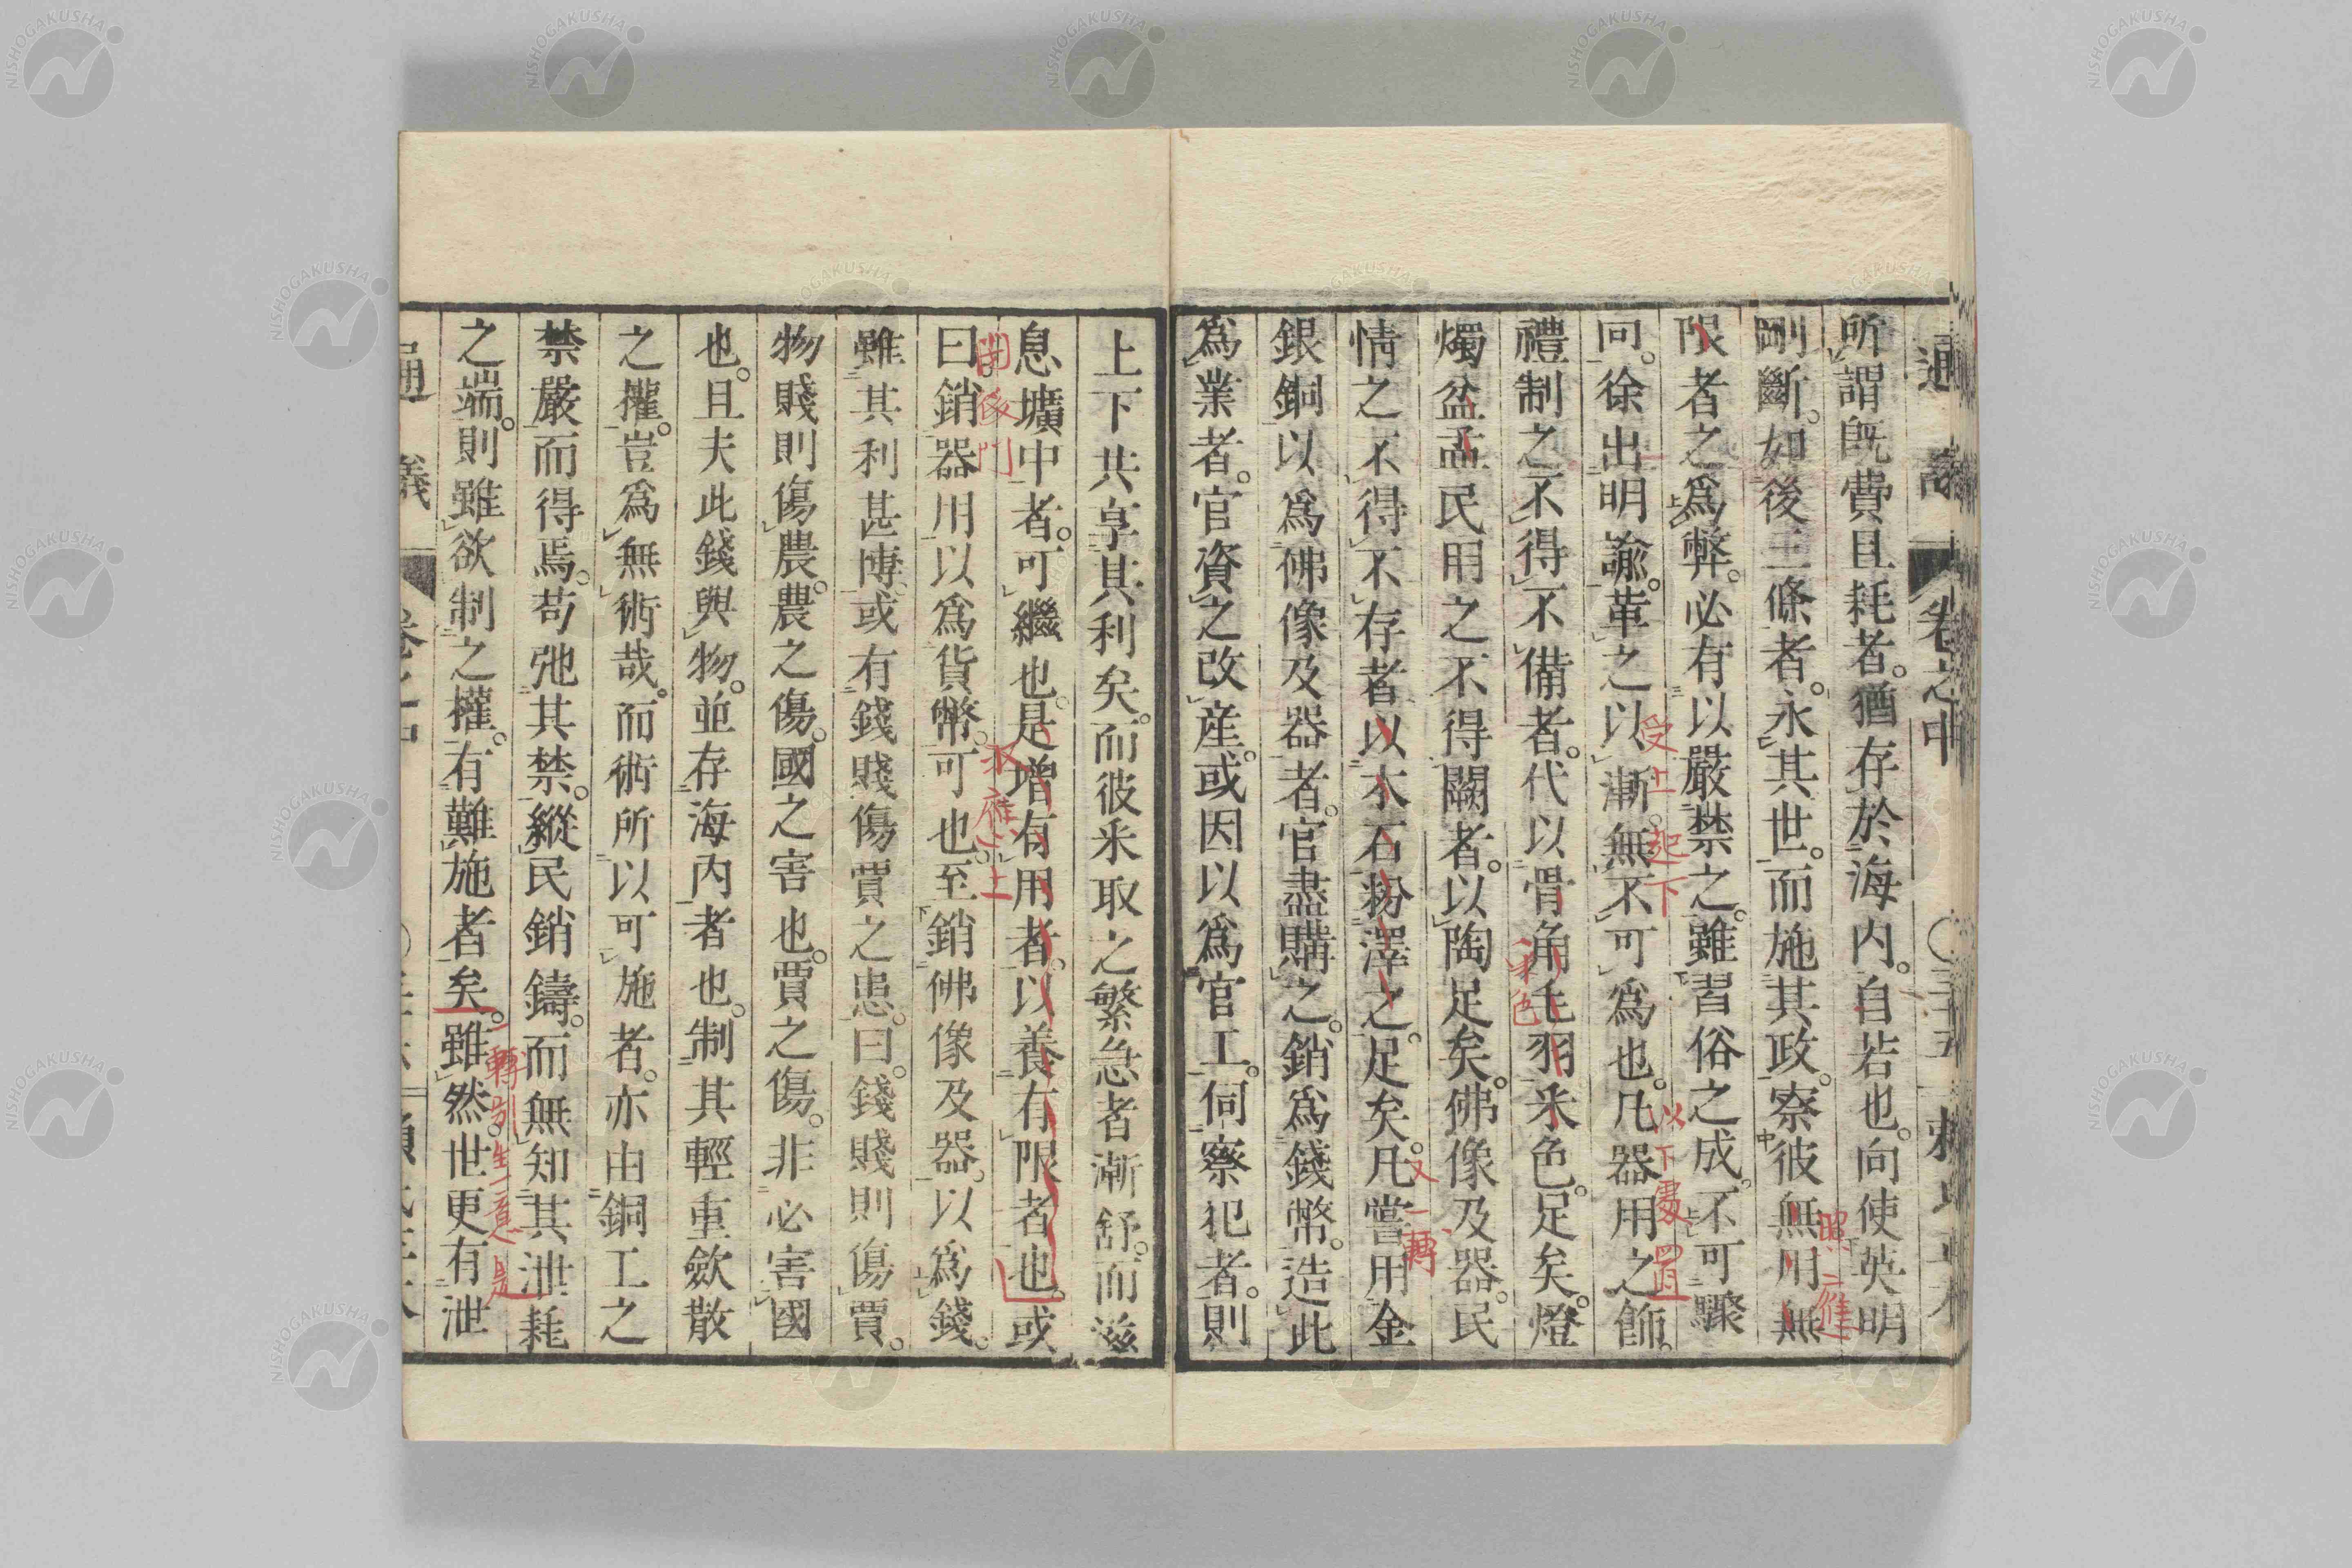 通議
卷之中
所謂既費且耗者。猶存於海内。自若也。向使英明
剛斷。如後三條者。永其世。而施其政。察彼無用無
限者之爲弊。必有以嚴禁之。雖習俗之成。不可驟
回。徐出明諭。革之以漸。無不可爲也。凡器用之飾。
禮制之不得不備者。代以骨角毛羽釆色。足矣。燈
燭盆盂民用之不得闕者。以陶足矣。佛像及器。民
情之不得不存者以木石粉澤之。足矣。凡嘗用金
銀銅以爲佛像及器者。官盡購之。銷爲錢幣。造此
爲業者。官資之改産。或因以爲官工。伺察犯者。則
上下共享其利矣。而彼釆取之繁急者漸舒。而滋
息壙中者。可繼也。是增有用者。以養有限者也。或
曰。銷器用以爲貨幣。可也。至銷佛像及器。以爲錢。
雖其利甚博。或有錢賤傷賈之患。曰。錢賤則傷賈。
物賤則傷農。農之傷。國之害也。賈之傷。非必害國
也。且夫此錢與物。並存海内者也。制其輕重斂散
之權。豈爲無術哉。而術所以可施者。亦由銅工之
禁嚴而得焉。苟弛其禁。縱民銷鑄。而無知其泄耗
之端。則雖欲制之權。有難施者矣。雖然。世更有泄
通議
受上起下
以下處置
照應
釆色
又一轉
開後門
承應上
轉別生一意是